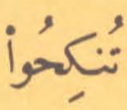 تُنكِحُوا۟